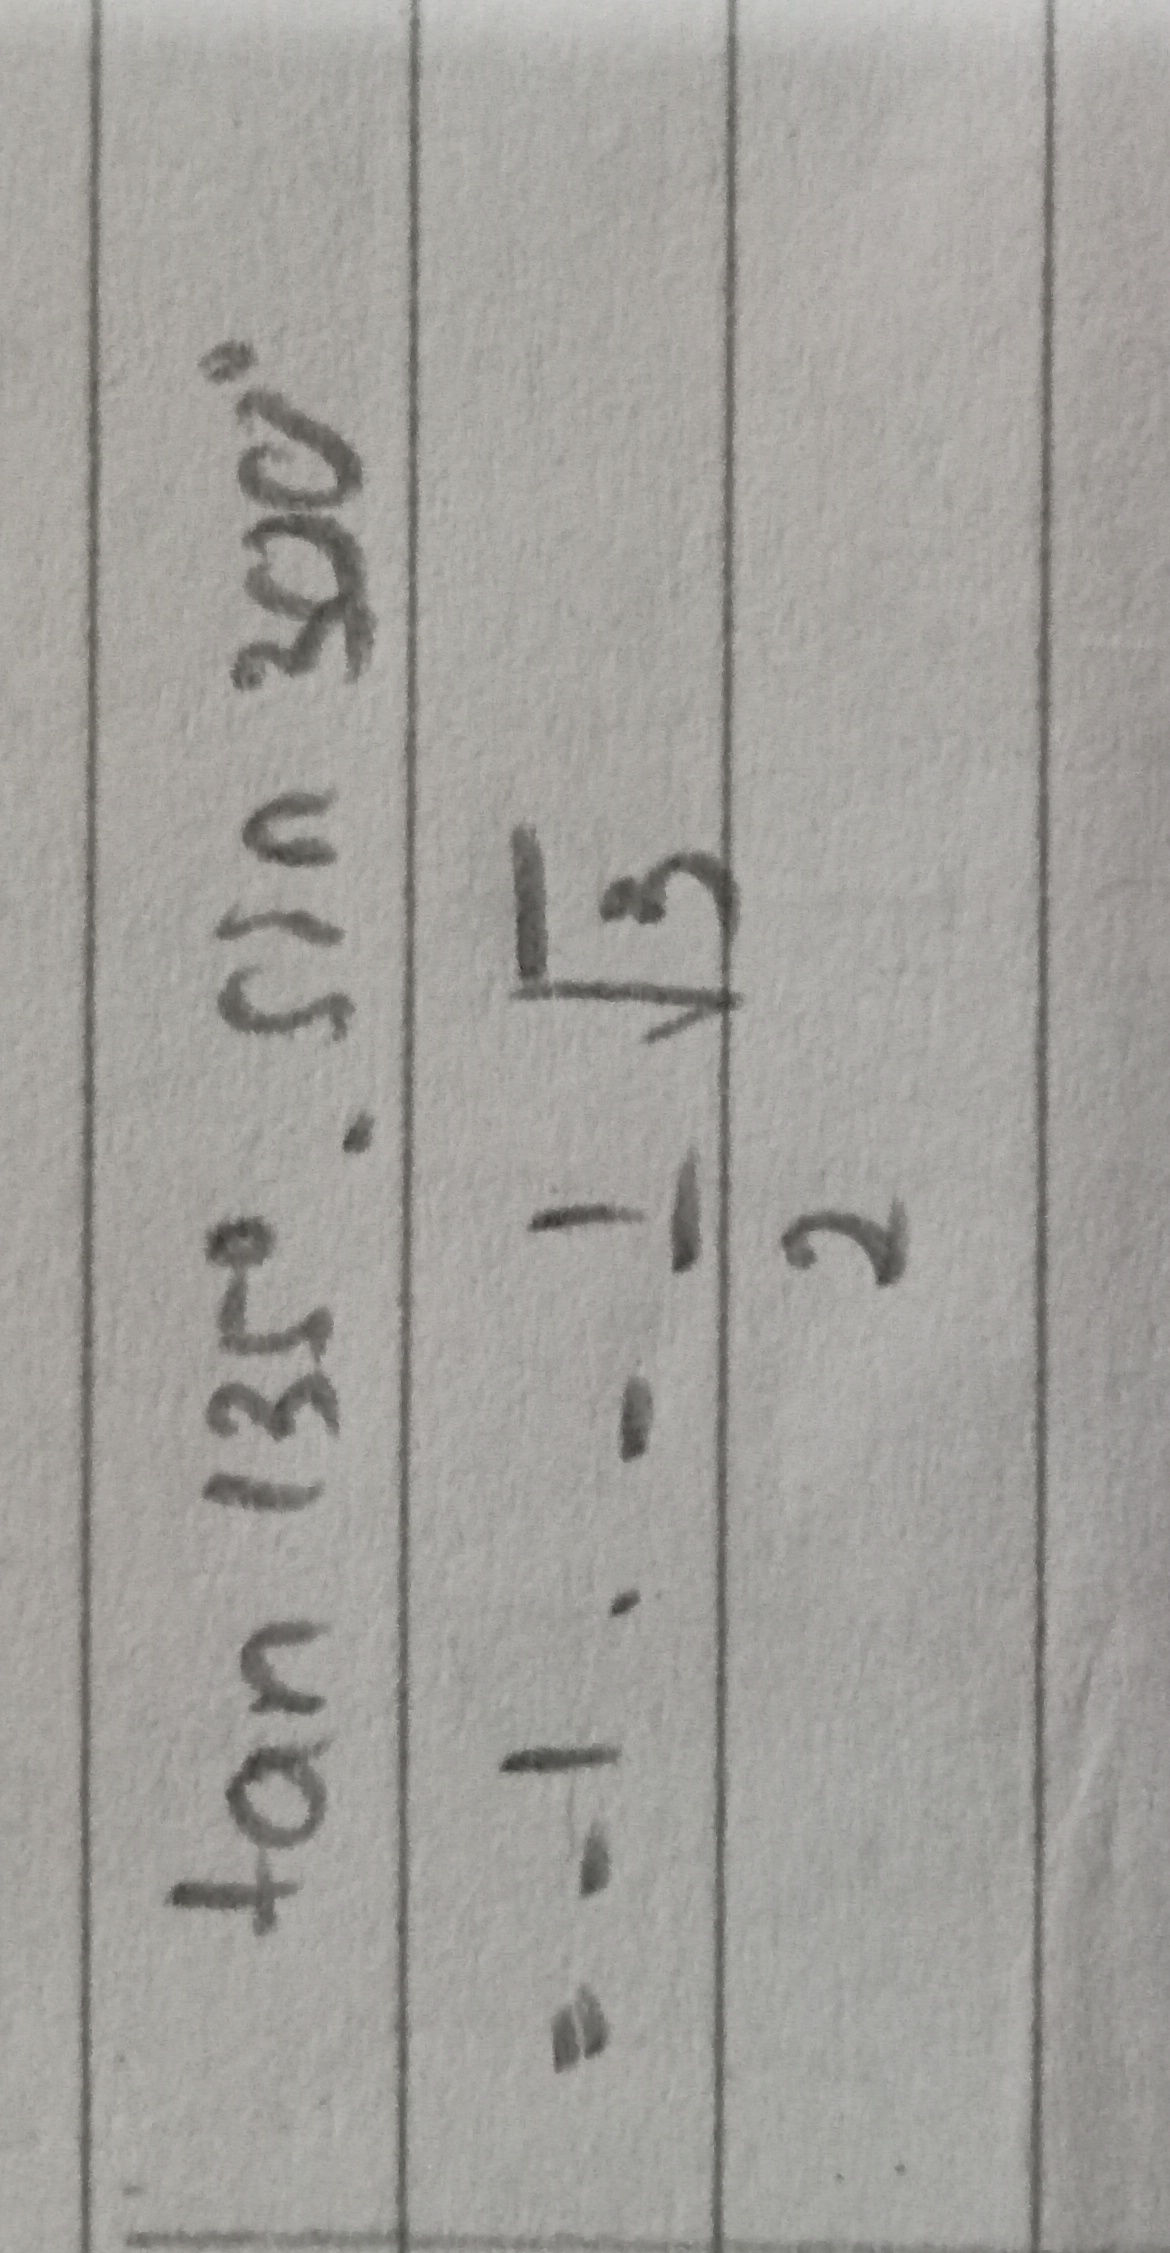 tan 135° . sin 300°
= -1 . - 1/2 √3